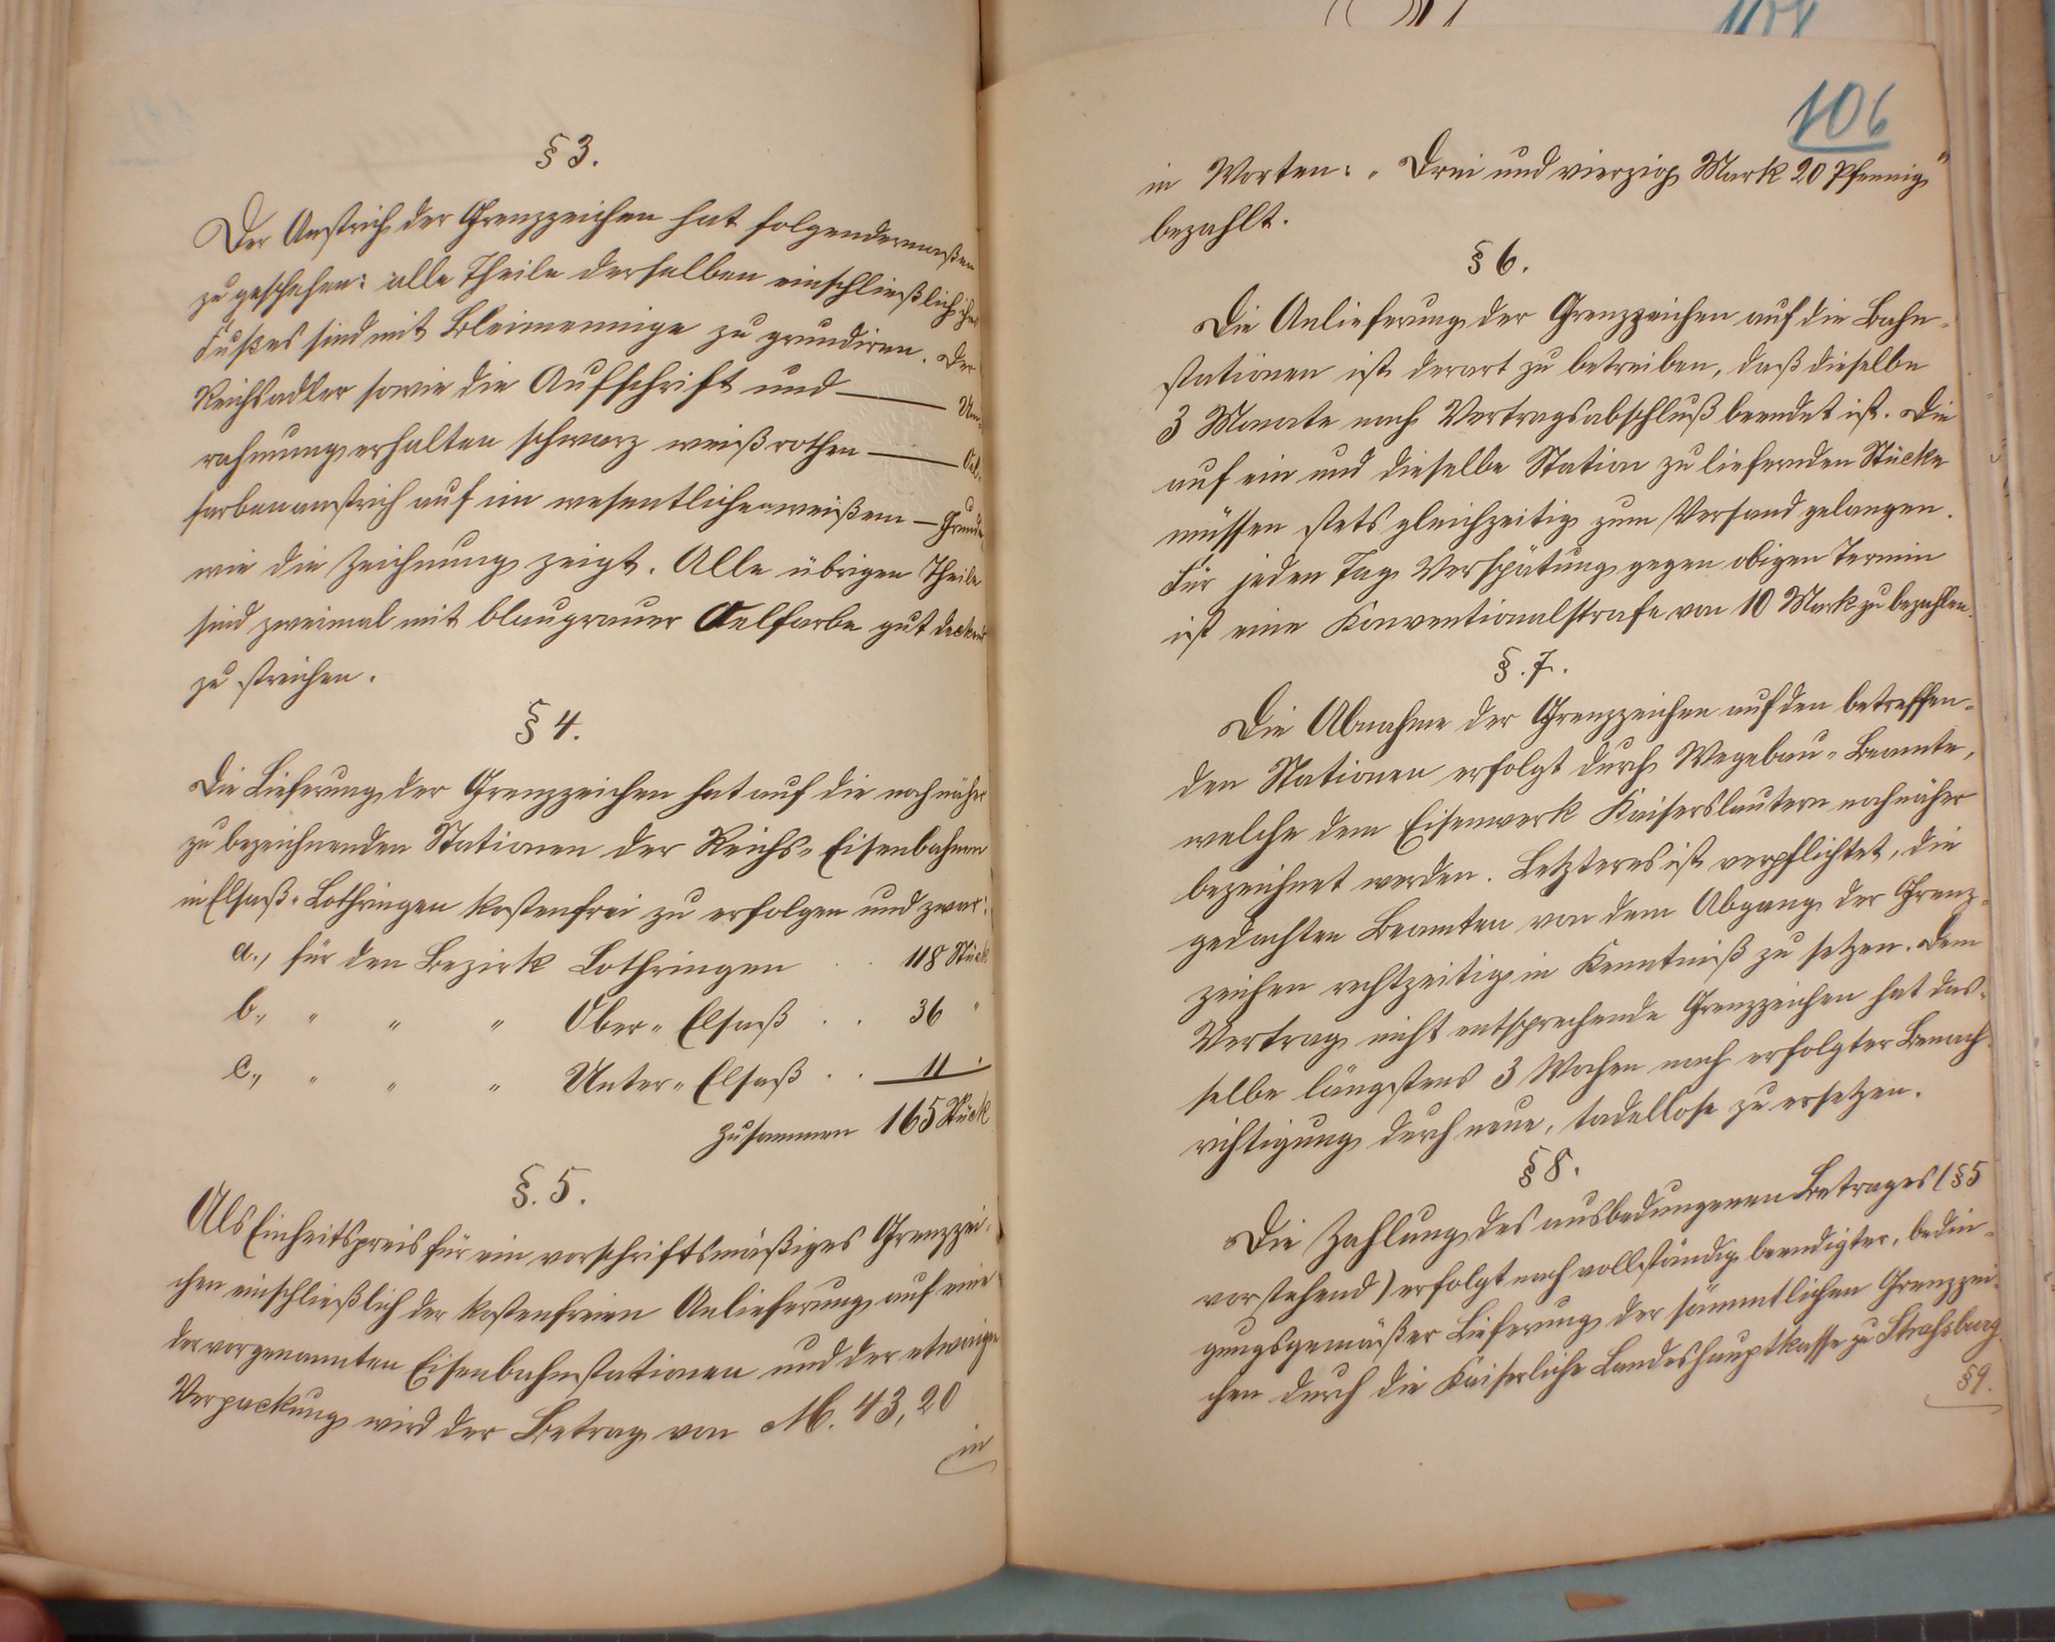 § 3.
Der Anstrich der Grenzzeichen hat folgendermaßen
zu geschehen: alle Theile derselben einschließlich ihres
Fußes sind mit Bleimennige zu grundiren. Der
Reichsadler sowie die Aufschrift und — Um-
rahmung erhalten schwarz weiß rothen — Oel-
farbenanstrich auf im wesentlichen weißem — Grunde
wie die Zeichnung zeigt. Alle übrigen Theile
sind zweimal mit blaugrauer Oelfarbe gut deckend
zu streichen.
§ 4.
Die Lieferung der Grenzzeichen hat auf die noch näher
zu bezeichnenden Stationen der Reichs-Eisenbahnen
in Elsaß-Lothringen kostenfrei zu erfolgen und zwar:
a., für den Bezirk Lothringen . . 118 Stück
b., " " " Ober-Elsaß . . 36 "
c., " " " Unter-Elsaß . . 11 "
zusammen 165 Stück
§. 5.
Als Einheitspreis für ein vorschriftsmäßiges Grenzzei-
chen einschließlich der kostenfreien Anlieferung auf eine
der vorgenannten Eisenbahnstationen und der etwaigen
Verpackung wird der Betrag von M. 43,20
in
106
in Worten: "Drei und vierzig Mark 20 Pfennig"
bezahlt.
§ 6.
Die Anlieferung der Grenzzeichen auf die Bahn-
stationen ist derart zu betreiben, daß dieselbe
3 Monate nach Vertragsabschluß beendet ist. Die
auf ein und dieselbe Station zu liefernden Stücke
müssen stets gleichzeitig zum Versand gelangen.
Für jeden Tag Verspätung gegen obigen Termin
ist eine Konventionalstrafe von 10 Mark zu bezahlen.
§. 7.
Die Abnahme der Grenzzeichen auf den betreffen-
den Stationen erfolgt durch Wegebau-Beamte,
welche dem Eisenwerk Kaiserslautern noch näher
bezeichnet werden. Letzteres ist verpflichtet, die
gedachten Beamten von dem Abgang der Grenz-
zeichen rechtzeitig in Kenntniß zu setzen. Dem
Vertrag nicht entsprechende Grenzzeichen hat das-
selbe längstens 3 Wochen nach erfolgter Benach-
richtigung durch neue, tadellose zu ersetzen.
§ 8.
Die Zahlung des ausbedungenen Betrages (§ 5
vorstehend) erfolgt nach vollständig beendigter, bedin-
gungsgemäßer Lieferung der sämmtlichen Grenzzei-
chen durch die Kaiserliche Landeshauptkasse zu Strassburg.
§ 9.